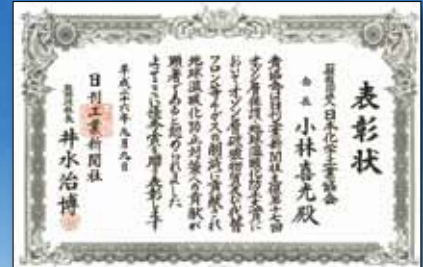 表彰状
一般社団法人日本化学工業協会
会長 小林喜光殿
貴協会は日刊工業新聞社主催第十七回
オゾン層保護・地球温暖化防止大賞に
おいてオゾン層破壊物質及び代替
フロン等ガスの削減に貢献され
地球温暖化防止対策への貢献が
顕著であると認められました
よってここに優秀賞を贈り表彰します
平成二十六年九月九日
日刊工業新聞社
井水治博